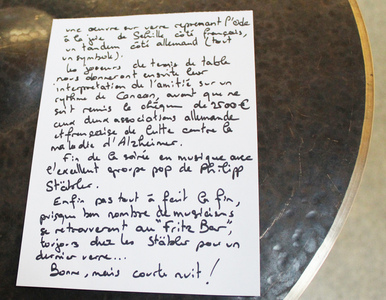 une œuvre sur verre reprenant l'Ode
à la joie de Schiller côté français,
un tandem côté allemand (tout
un symbole).
Les joueurs de tennis de table
nous donneront ensuite leur
interprétation de l'amitié sur un
rythme de Cancan, avant que ne
soit remis le chèque de 2500 €
aux deux associations allemande
et française de lutte contre la
maladie d'Alzheimer.
Fin de la soirée en musique avec
l'excellent groupe pop de Philipp
Stäbler.
Enfin pas tout à fait la fin,
puisque bon nombre de musiciens
se retrouveront au "Fritz Bar",
toujours chez les Stäbler pour un
dernier verre...
Bonne, mais courte nuit !